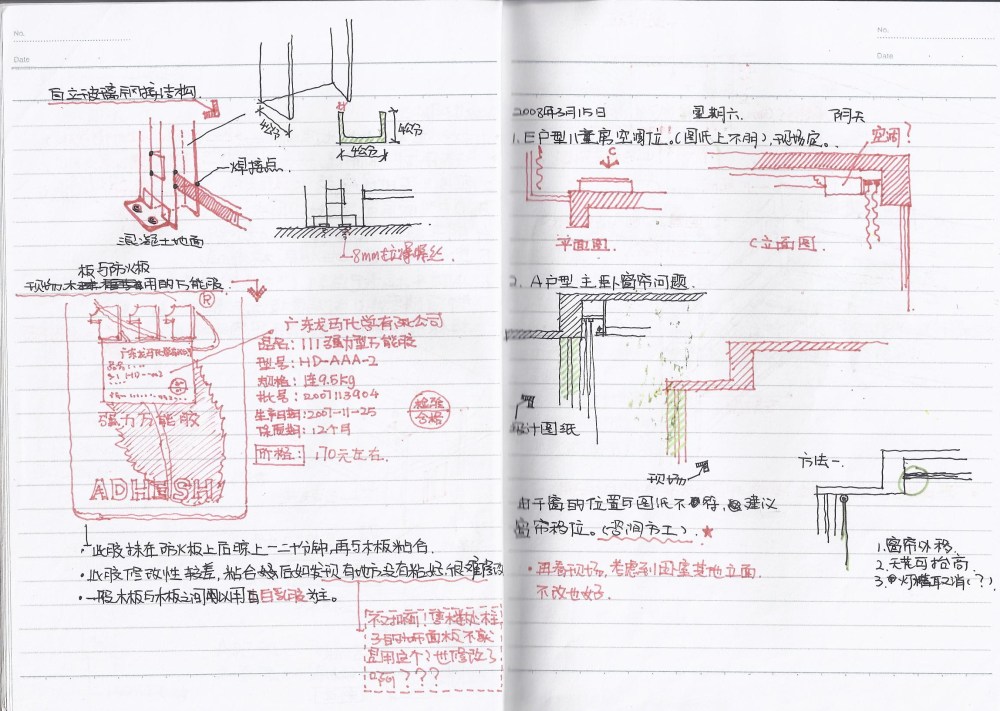 No.
Date
自立玻璃隔断结构
4公分
4公分
4公分
焊接点
混凝土地面
8mm拉爆螺丝
板与防火板
现场木用的万能胶
R
广东龙马化学有限公司
品名: 111强力型万能胶
型号: HD-AAA-2
规格: 连9.5kg
批号: 2007113904
生产日期: 2007-11-25
保质期: 12个月
检验
合格
价格: 170元左右.
强力万能胶
ADHESH
·此胶抹在防火板上后晾上一二十分钟,再与木板粘合.
·此胶修改性较差,粘合后如发现有地方没有粘好,很难
·一般木板与木板之间用以白乳胶为主。
是用这个?也修改了
???
No.
Date
2008年3月15日 星期六. 阴天
1. E户型儿童房空调位。(图纸上不明),现场定。
空调?
C
平面图.
C立面图
2. A户型主卧窗帘问题.
设计图纸
现场
方法一.
由于窗的位置与图纸不符,建议
窗帘移位。(咨询方工) ★
·再看现场,考虑到因室其他立面.
不改也好.
1.窗帘外移.
2.天花可抬高
3.灯槽取消(?)